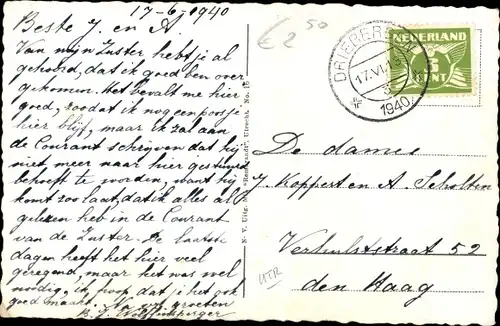 17-6-1940
Beste J. en A.
Van mijn Zuster hebt je al
gehoord, dat ik goed ben over
gekomen. Het bevalt me hier
goed, zoodat ik nog een poosje
hier blijf, maar ik zal aan
de Courant schrijven dat hij
niet meer naar hier gestuurd
behoeft te worden, want hij
komt zoo laat, dat ik alles al
gelezen heb in de Courant
van de Zuster. De laatste
dagen heeft het hier veel
geregend, maar het was wel
noodig, ik hoop dat je het ook
goed maakt. groeten
B. J.
€ 2 50
N. V. Uitg. Mij. "Rembrandt", Utrecht. No.
DRIEBERGEN
17.VI.1
1940
NEDERLAND
CENT
De dames
J. Koppert en A. Scholten
Verhulststraat 52
den Haag
UTR